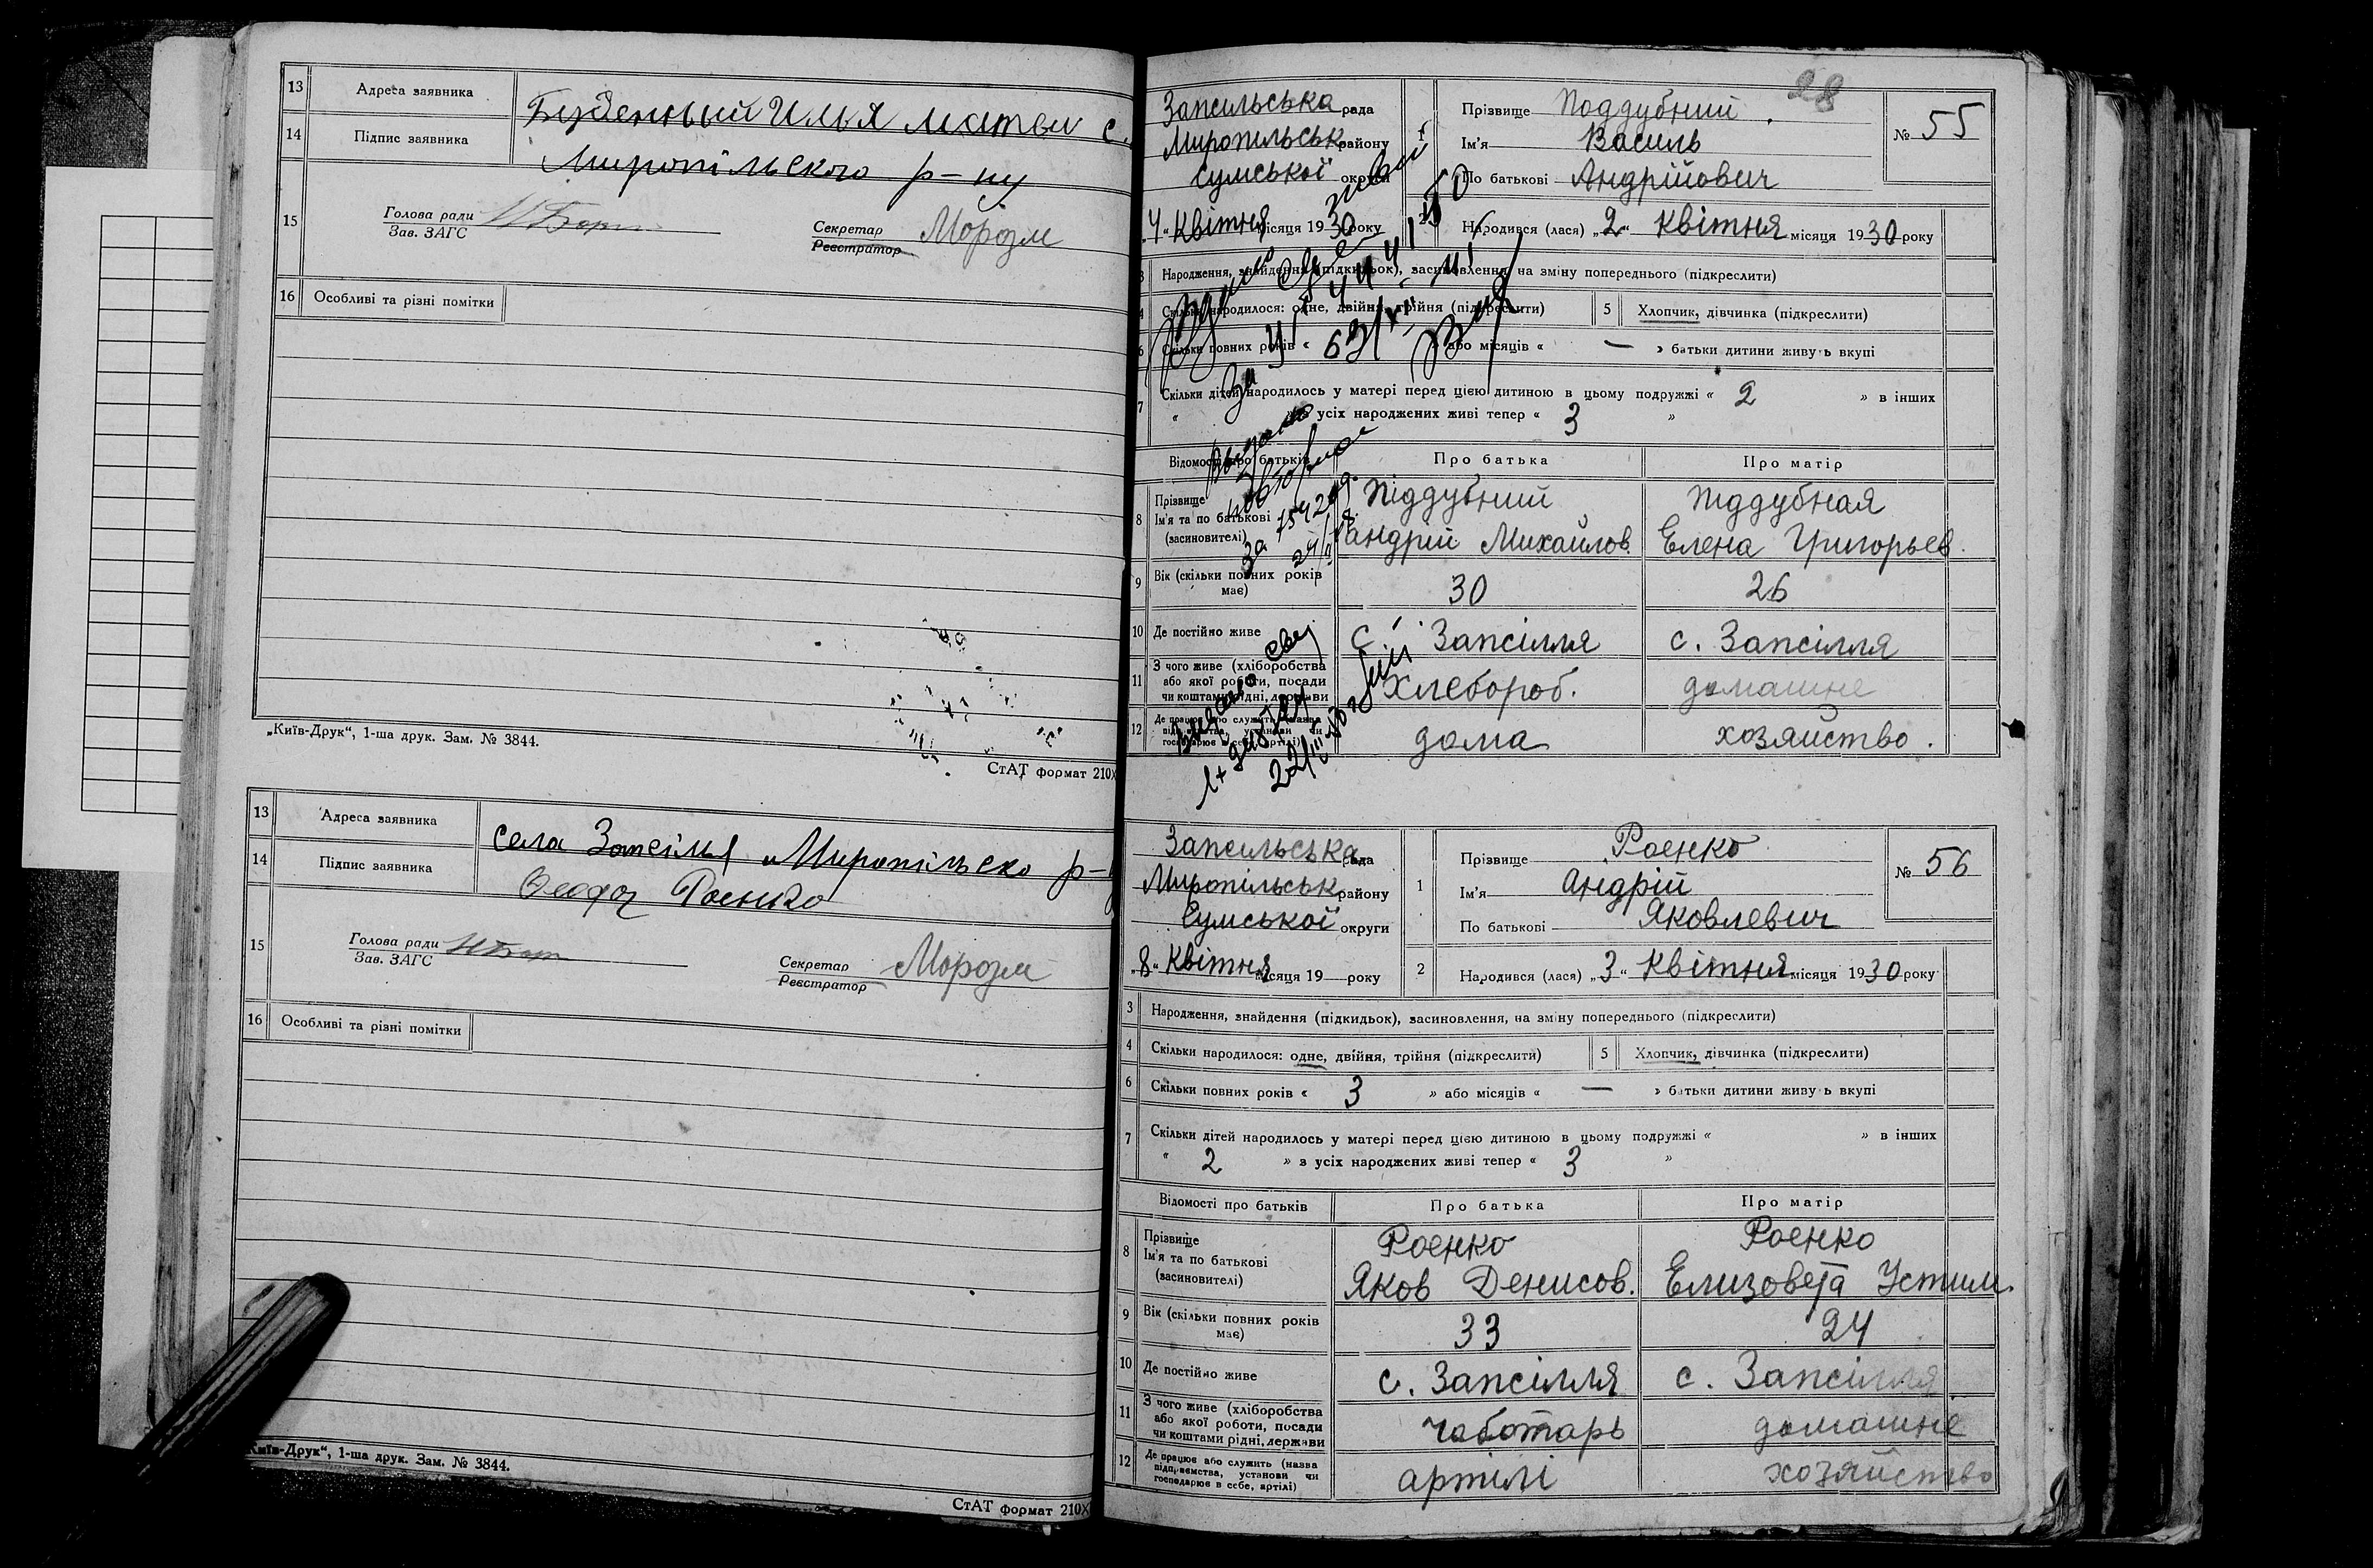 13 Адреса заявника
Буденный Илья Матвеи с.
14 Підпис заявника
Миропільского р-ну
15 Голова ради
Зав. ЗАГС
Секретар
Реєстратор
16 Особливі та різні помітки
„Київ-Друк“, 1-ша друк. Зам. № 3844.
СтАТ формат 210X
13 Адреса заявника
села Запсілля Миропільско р-
14 Підпис заявника
Роенко
15 Голова ради
Зав. ЗАГС
Секретар
Реєстратор
16 Особливі та різні помітки
Київ-Друк“, 1-ша друк. Зам. № 3844.
СтАТ формат 210X
28
Запсильська рада
Миропильськ району
Сумської округи
„4“ Квітня місяця 1930 року
1 Прізвище Поддубний
Ім'я Василь
По батькові Андрійович
№ 55
Народився (лася) „2“ Квітня місяця 1930 року
Народження, знайдення (підкидьок), засиновлення, на зміну попереднього (підкреслити)
Скільки народилося: одне, двійня, трійня (підкреслити)
5 Хлопчик, дівчинка (підкреслити)
6 Скільки повних років « » або місяців « — » батьки дитини живуть вкупі
7 Скільки дітей народилось у матері перед цією дитиною в цьому подружжі « 2 » в інших
« » з усіх народжених живі тепер « 3 »
Відомості про батьків Про батька Про матір
8 Прізвище
Ім'я та по батькові
(засиновителі)
Піддубний
Андрій Михайлов.
Піддубная
Елена Григорьев.
9 Вік (скільки повних років має) 30 26
10 Де постійно живе с. Запсілля с. Запсілля
11 З чого живе (хліборобства
або якої роботи, посади
чи коштами рідні, держави
Хлебороб. домашне
12 Де працює або служить (назва
підприємства, установи чи
господарює в себе, артілі)
дома хозяйство.
Запсильська рада
Миропільськ району
Сумської округи
„8“ Квітня місяця 19 — року
1 Прізвище Роенко
Ім'я Андрій
По батькові Яковлевич
№ 56
2 Народився (лася) „3“ Квітня місяця 1930 року
3 Народження, знайдення (підкидьок), засиновлення, на зміну попереднього (підкреслити)
4 Скільки народилося: одне, двійня, трійня (підкреслити)
5 Хлопчик, дівчинка (підкреслити)
6 Скільки повних років « 3 » або місяців « — » батьки дитини живуть вкупі
7 Скільки дітей народилось у матері перед цією дитиною в цьому подружжі « » в інших
« 2 » з усіх народжених живі тепер « 3 »
Відомості про батьків Про батька Про матір
8 Прізвище
Ім'я та по батькові
(засиновителі)
Роенко
Яков Денисов.
Роенко
Елизовета Устим.
9 Вік (скільки повних років має) 33 24
10 Де постійно живе с. Запсілля с. Запсілля
11 З чого живе (хліборобства
або якої роботи, посади
чи коштами рідні, держави
чаботарь домашне
12 Де працює або служить (назва
підприємства, установи чи
господарює в себе, артілі)
артілі хозяйство